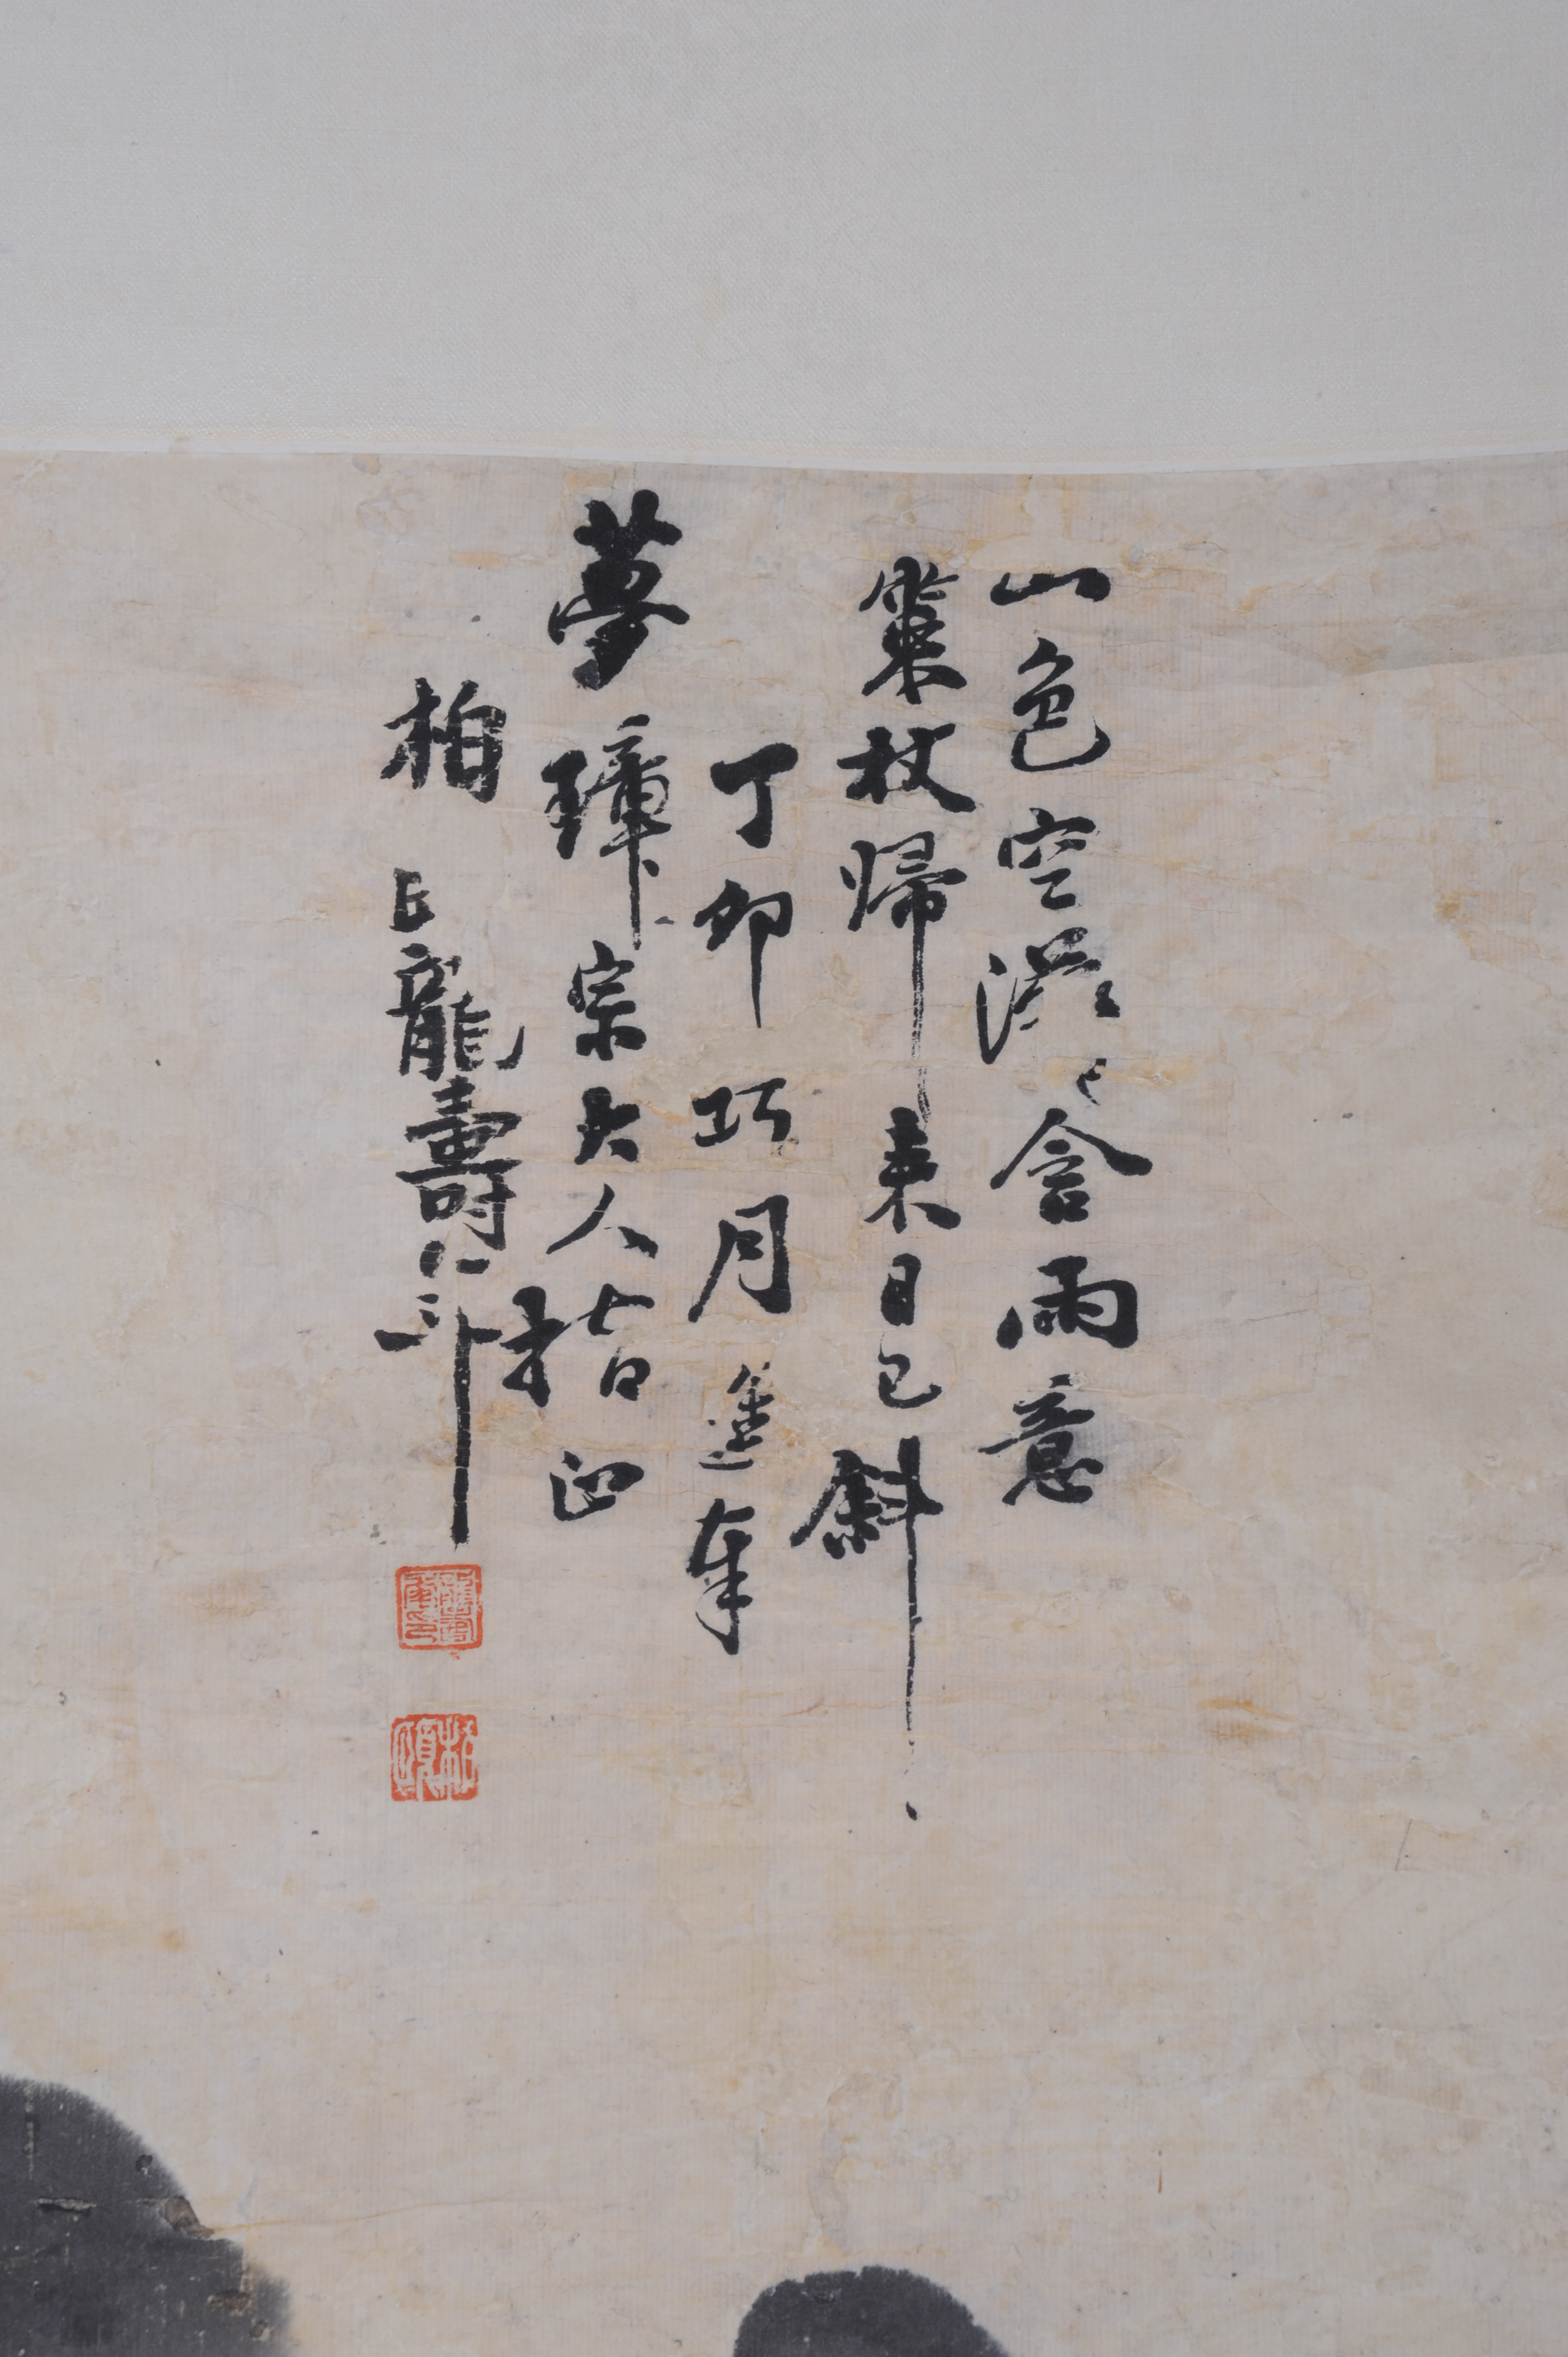 山色空濛含雨意
策杖歸來日已斜
丁卯巧月塗奉
夢璋宗大人指正
柏臣龍壽